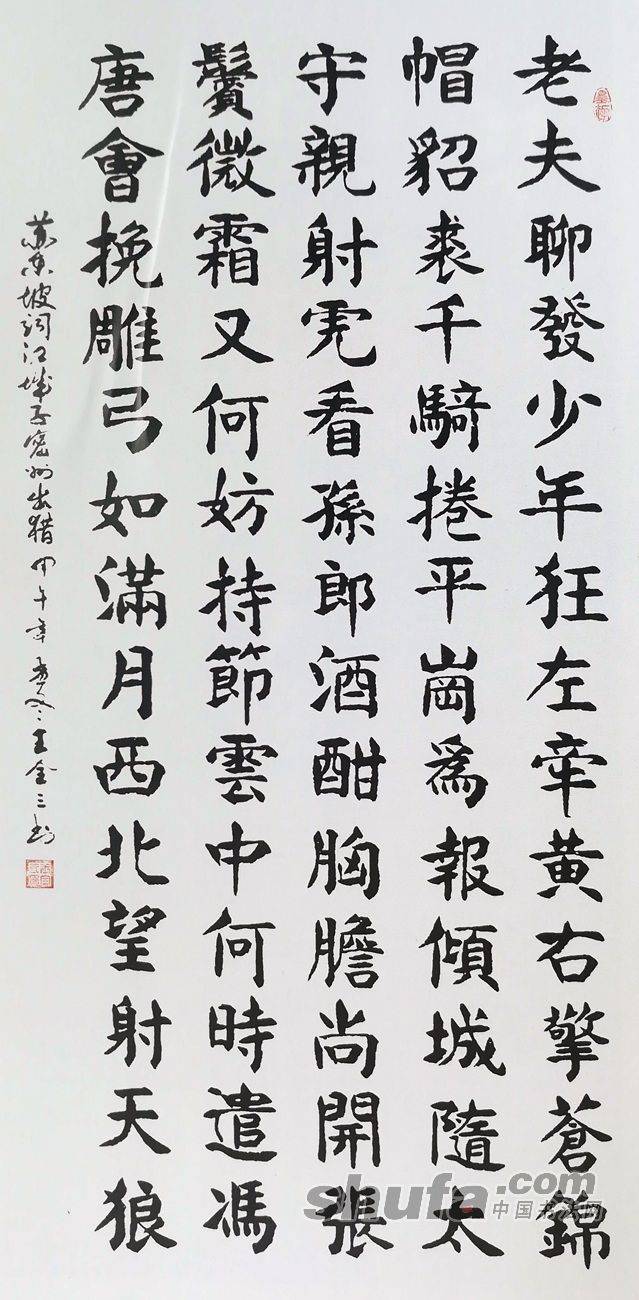 老夫聊發少年狂左牽黄右擎蒼錦
帽貂裘千騎捲平崗爲報傾城隨太
守親射虎看孫郎酒酣胸膽尚開張
鬢微霜又何妨持節雲中何時遣馮
唐會挽雕弓如滿月西北望射天狼
蘇東坡詞江城子密州出猎甲午年夏王金三书
shufa.com
中国书法网